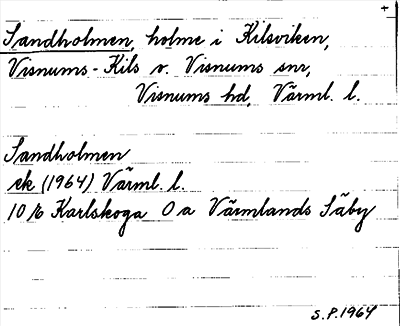 +
Sandholmen, holme i Kilsviken,
Visnums-Kils o. Visnums snr,
Visnums hd, Värml. l.
Sandholmen
ek (1964) Värml. l.
10 Karlskoga O a Värmlands Säby
S.P. 1964